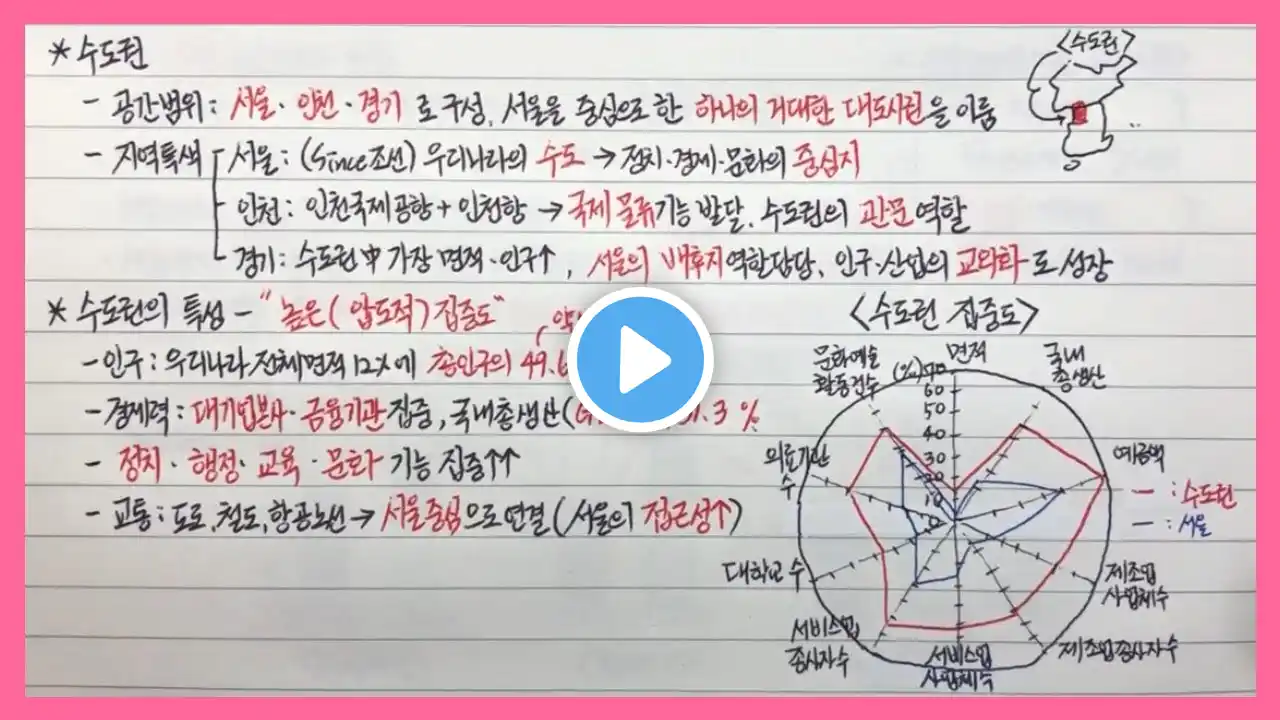 * 수도권
- 공간범위 : 서울 · 인천 · 경기 로 구성, 서울을 중심으로 한 하나의 거대한 대도시권을 이룸
- 지역특색
서울 : (Since조선) 우리나라의 수도 → 정치·경제·문화의 중심지
인천 : 인천국제공항 + 인천항 → 국제 물류기능 발달, 수도권의 관문 역할
경기 : 수도권 中 가장 면적·인구↑, 서울의 배후지역할담당, 인구·산업의 교외화 로 성장
<수도권>
* 수도권의 특성 - "높은 (압도적) 집중도"
- 인구 : 우리나라 전체면적 12%에 총인구의 49.6
- 경제력 : 대기업본사·금융기관 집중, 국내총생산(G .3 %
- 정치 · 행정 · 교육 · 문화 기능 집중↑↑
- 교통 : 도로, 철도, 항공노선 → 서울중심으로 연결 (서울의 접근성↑)
<수도권 집중도>
면적
국내
총생산
예금액
제조업
사업체수
제조업종사자수
서비스업
사업체수
서비스업
종사자수
대학교 수
의료기관
수
문화예술
활동건수
(%)70
60
50
40
30
20
10
0
- : 수도권
- : 서울